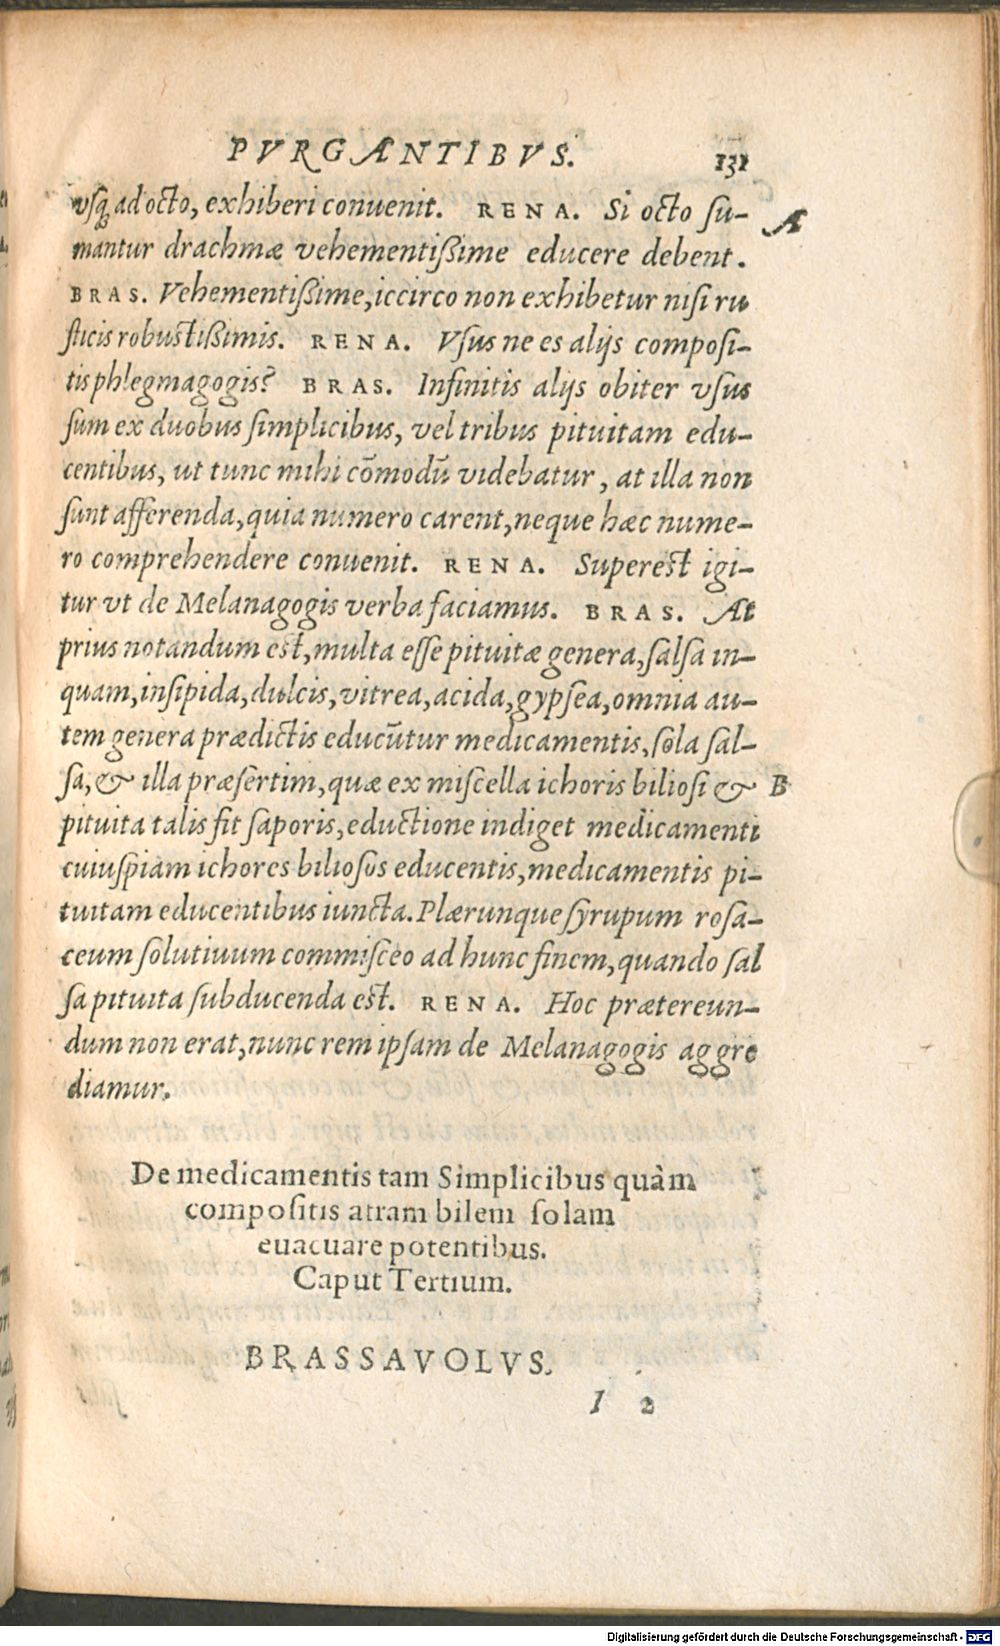 PVRGANTIBVS. 131
vsq́ue ad octo, exhiberi conuenit. RENA. Si octo su- A
mantur drachmæ vehementißime educere debent.
BRAS. Vehementißime, iccirco non exhibetur nisi ru
sticis robustißimis. RENA. Vsus ne es alijs composi-
tis phlegmagogis? BRAS. Infinitis alijs obiter vsus
sum ex duobus simplicibus, vel tribus pituitam edu-
centibus, ut tunc mihi cõmodũ videbatur, at illa non
sunt afferenda, quia numero carent, neque hæc nume-
ro comprehendere conuenit. RENA. Superest igi-
tur vt de Melanagogis verba faciamus. BRAS. At
prius notandum est, multa esse pituitæ genera, salsa in-
quam, insipida, dulcis, vitrea, acida, gypsea, omnia au-
tem genera prædictis educũtur medicamentis, sola sal-
sa, & illa præsertim, quæ ex miscella ichoris biliosi & B
pituita talis fit saporis, eductione indiget medicamenti
cuiuspiam ichores biliosos educentis, medicamentis pi-
tuitam educentibus iuncta. Plærunque syrupum rosa-
ceum solutiuum commisceo ad hunc finem, quando sal
sa pituita subducenda est. RENA. Hoc prætereun-
dum non erat, nunc rem ipsam de Melanagogis aggre
diamur.
De medicamentis tam Simplicibus quàm
compositis atram bilem solam
euacuare potentibus.
Caput Tertium.
BRASSAVOLVS.
I 2
Digitalisierung gefördert durch die Deutsche Forschungsgemeinschaft - DFG